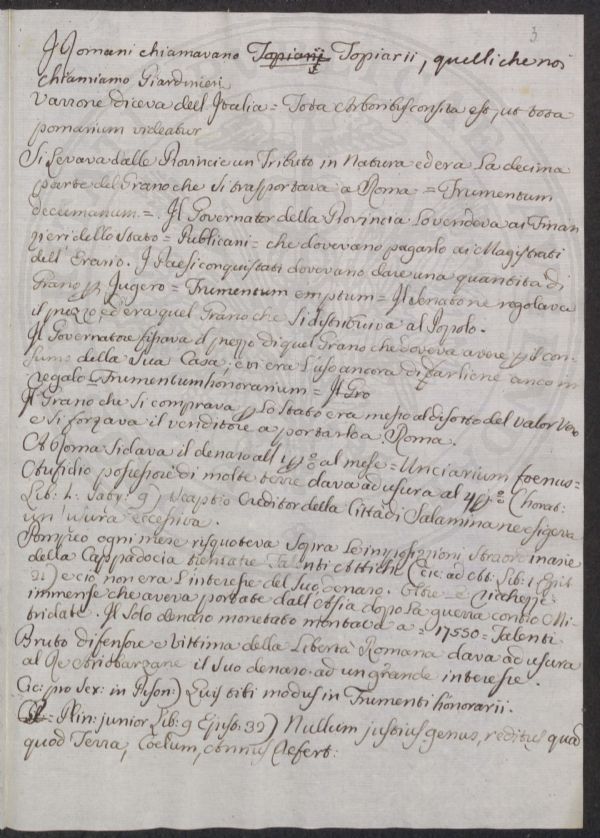 3
I Romani chiamavano Topiarii Topiarii, quelli che noi
chiamiamo Giardinieri
Varrone diceva dell'Italia = Tota Arboribus consita est, ut tota
pomarium videatur
Si Levava dalle Provincie un Tributo in Natura ed era La decima
parte del Grano che si trasportava a Roma = Frumentum
decumanum =. Il Governator della Provincia Lo vendeva ai Finan
zieri dello Stato = Publicani = che dovevano pagarlo ai Magistrati
dell'Erario. I Paesi conquistati dovevano dare una quantita di
Grano p Jugero = Frumentum emptum = Il Senato ne regolava
il prezzo, ed era quel Grano che si distribuiva al Popolo.
Il Governatore fissava il prezzo di quel Grano che doveva avere p il con-
sumo della Sua Casa, e vi era L'uso ancora di farliene anco in
regalo = Frumentum honorarium = Il Gro
Il Grano che si comprava p Lo Stato era messo al disotto del valor Vero
e si forzava il venditore a portarlo a Roma.
A Roma si dava il denaro all 1 p % al mese = Unciarium foenus =
Atusidio possessore di molte terre dava ad usura al 4 p % (Horat:
Lib: 1. Satyr: 9) Scaptio Creditor della Citta di Salamina ne esigeva
un'usura eccessiva.
Pompeo ogni mese risquoteva sopra Le imposizioni straordinarie
della Cappadocia trentatre Talenti Attiche (Cic: ad Att: Lib: 1 Epist
21) e ciò non era L'interesse del Suo denaro. Oltre è ricchezze
immense che aveva portate dall'Asia dopo La guerra contro Mi-
tridate. Il Solo denaro monetato montava a = 17550 = Talenti
Bruto difensore e Vittima della Libertà Romana dava ad usura
al Re Ariobarzane il Suo denaro ad un grande interesse.
Cic: pro Sex: in Pison:) Quis tibi modus in Frumenti honorarii.
= Plin: junior Lib: 9 Epist: 39) Nullum justius genus, reditus quam
quod Terra, Coelum, Annus refert: